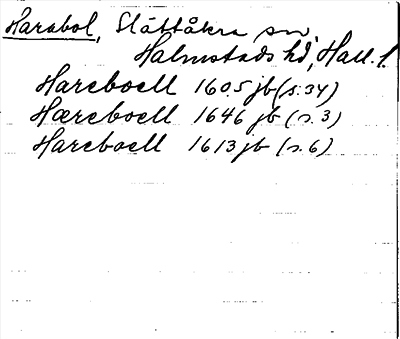 Harabol, Slättåkra sn,
Halmstads hd, Hall. l.
Hareboell 1605 jb (s. 34)
Hareboell 1646 jb (s. 3)
Hareboell 1613 jb (s. 6)